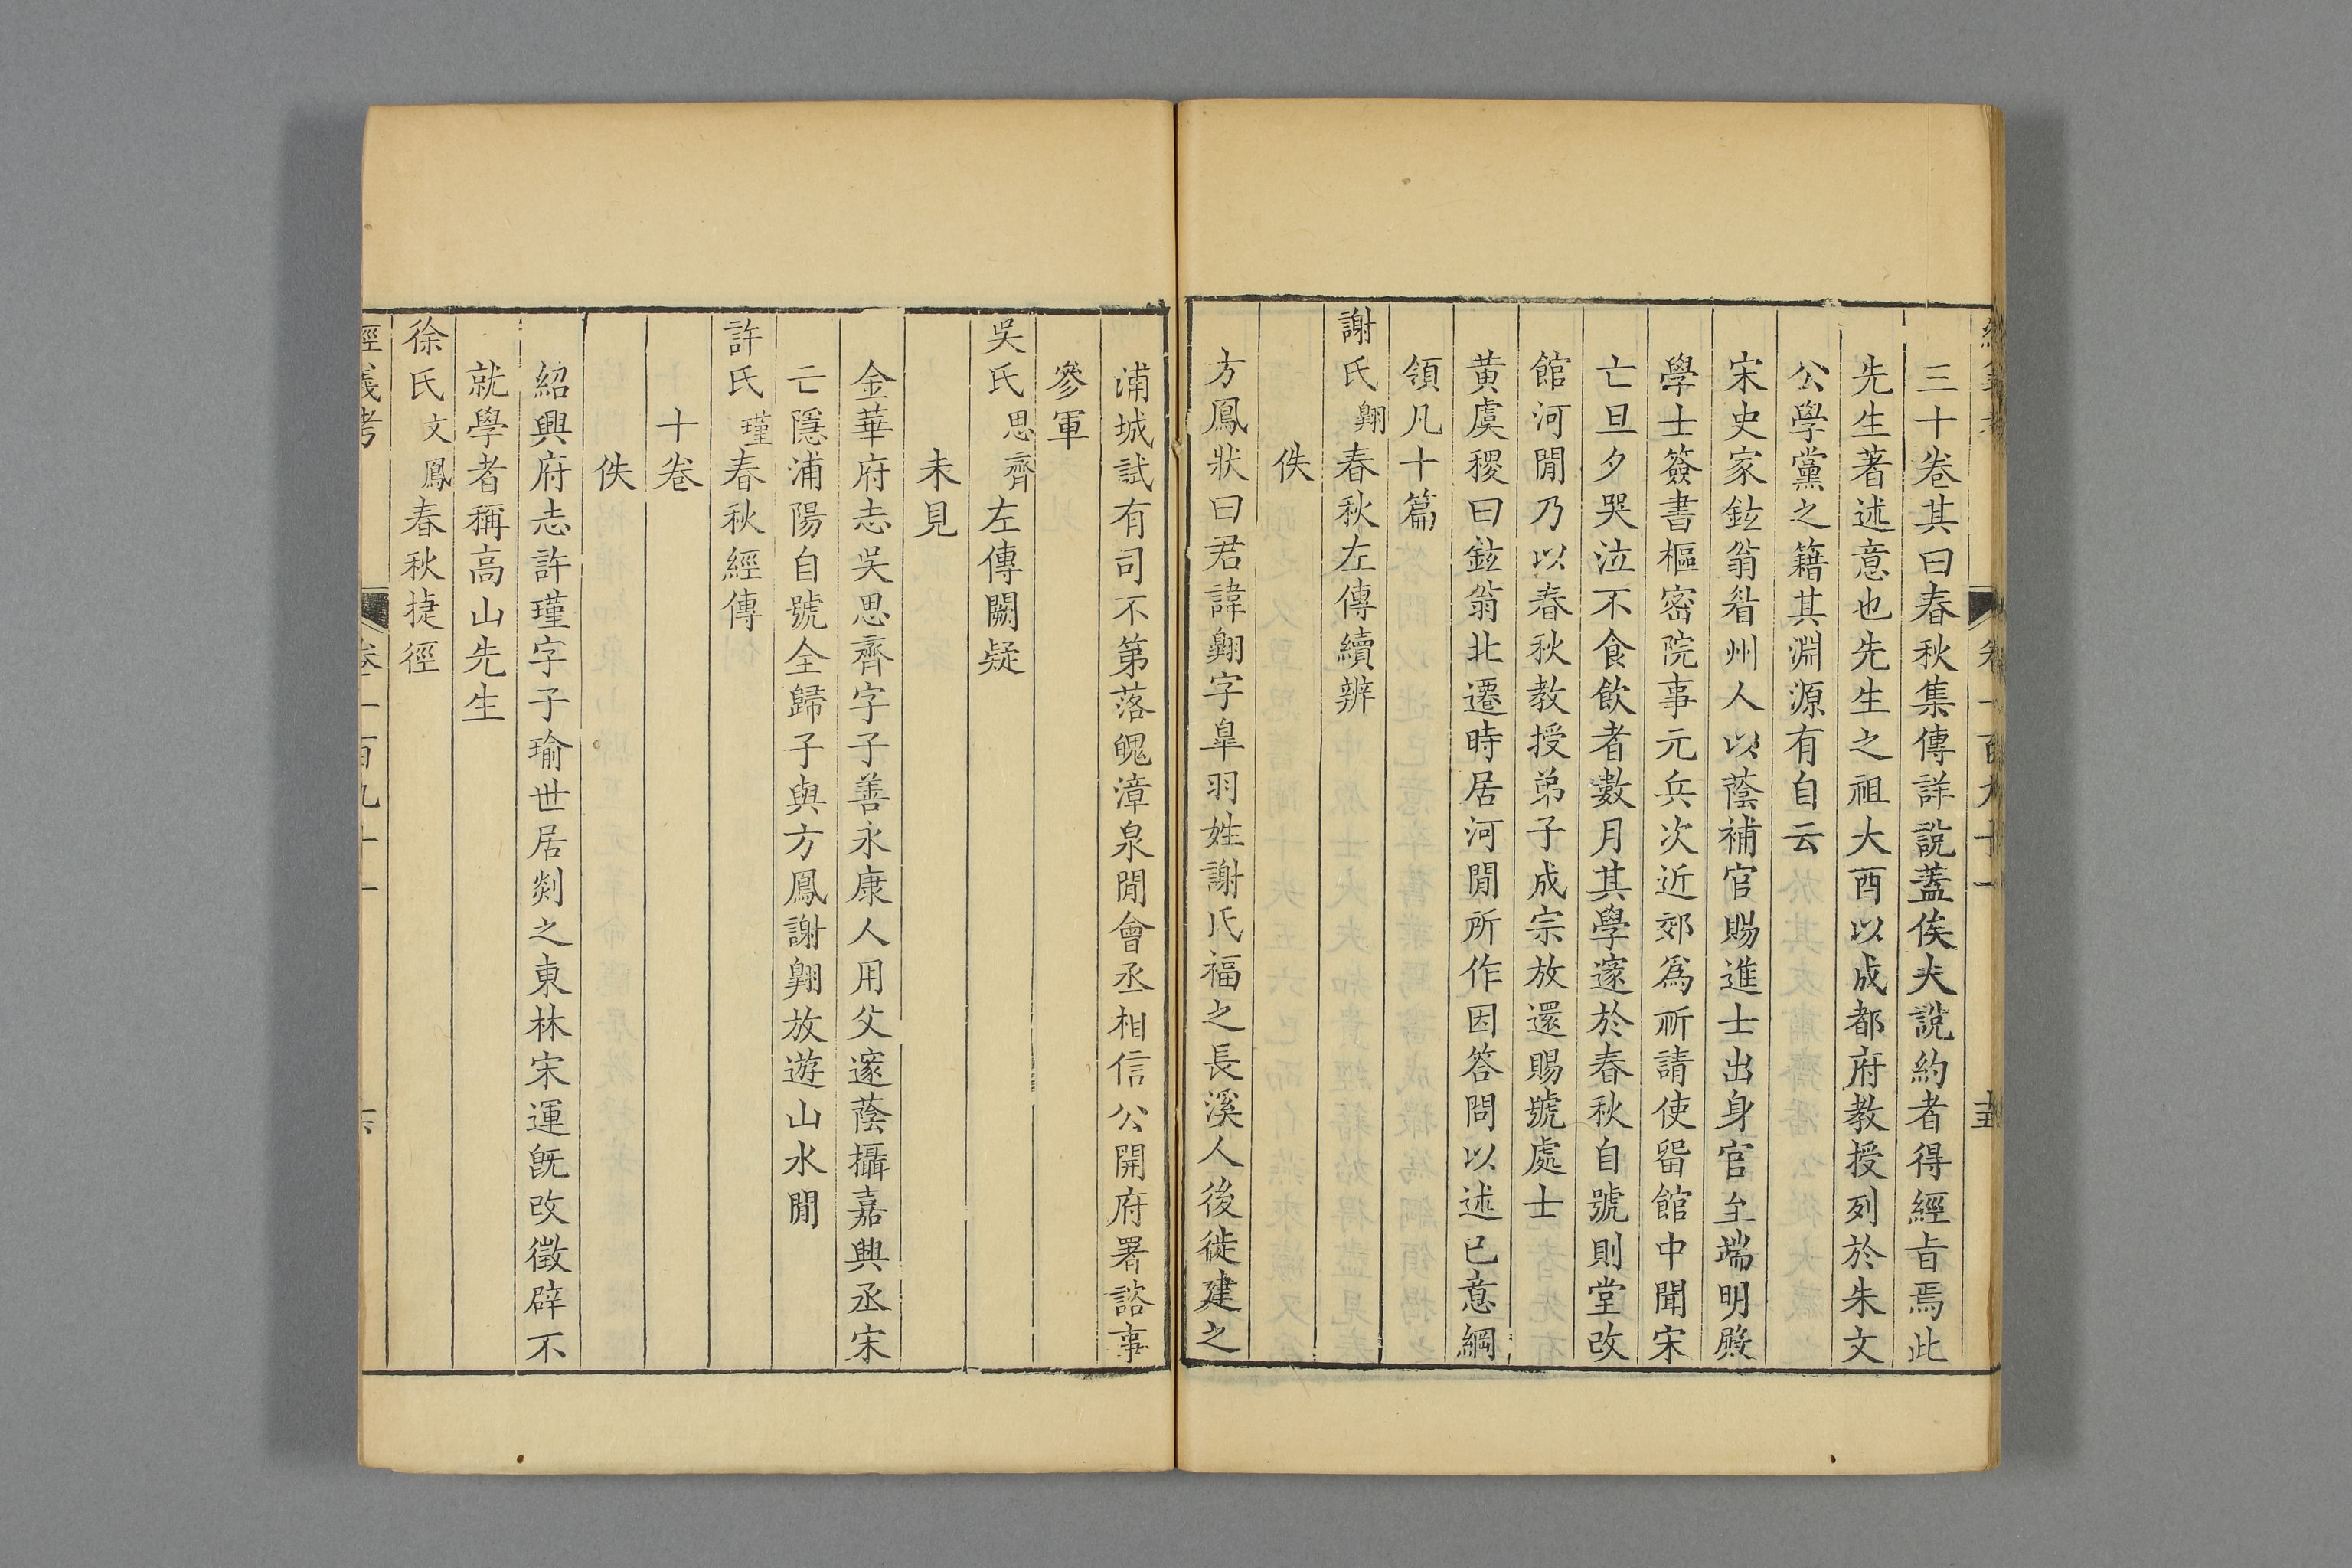 三十卷其曰春秋集傳詳說蓋俟夫說約者得經㫖焉此
先生著述意也先生之祖大酉以成都府教授列於朱文
公學黨之籍其淵源有自云
宋史家鉉翁眉州人以蔭補官賜進士出身官至端明殿
學士簽書樞密院事元兵次近郊爲祈請使畱館中聞宋
亡旦夕哭泣不食飲者數月其學邃於春秋自號則堂改
館河閒乃以春秋教授弟子成宗放還賜號處士
黄虞稷曰鉉翁北遷時居河閒所作因答問以述已意綱
領凡十篇
謝氏翱春秋左傳續辨
佚
方鳳狀曰君諱翱字皐羽姓謝氏福之長溪人後徙建之
浦城試有司不第落魄漳泉閒會丞相信公開府署諮事
參軍
吳氏思齊左傳闕疑
未見
金華府志吳思齊字子善永康人用父邃蔭攝嘉興丞宋
亡隱浦陽自號全歸子與方鳳謝翱放遊山水閒
許氏瑾春秋經傳
十卷
佚
紹興府志許瑾字子瑜世居剡之東林宋運旣改徵辟不
就學者稱高山先生
徐氏文鳳春秋捷徑
經義考 卷一百九十一